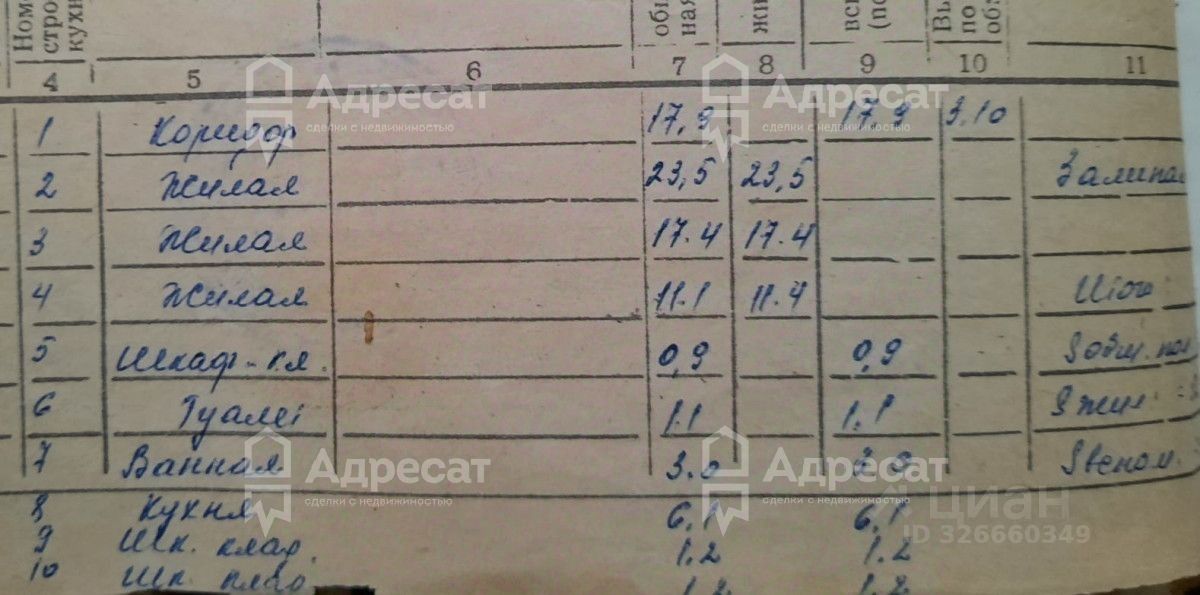 Номе
стро
кухн
об
ная
жи
всп
(по
Вы
по
об
4 5 6 7 8 9 10 11
Адресат Адресат
сделки с недвижимостью сделки с недвижимостью
1 Коридор 17,9 17,9 3,10
2 Жилая 23,5 23,5
3 Жилая 17.4 17.4
4 Жилая 11.1 11.4
5 Шкаф-кл. 0,9 0,9
Sобщ. пол
6 Туалет 1.1 1.1 Sжил
7 Ванная 3.0 Sвспом.
Адресат Адресат
сделки с недвижимостью сделки с недвижимостью
8 Кухня 6,1 6,1
циан
ID 326660349
9 Шк. клад. 1.2 1.2
10 Шк. клад 1.2 1.2